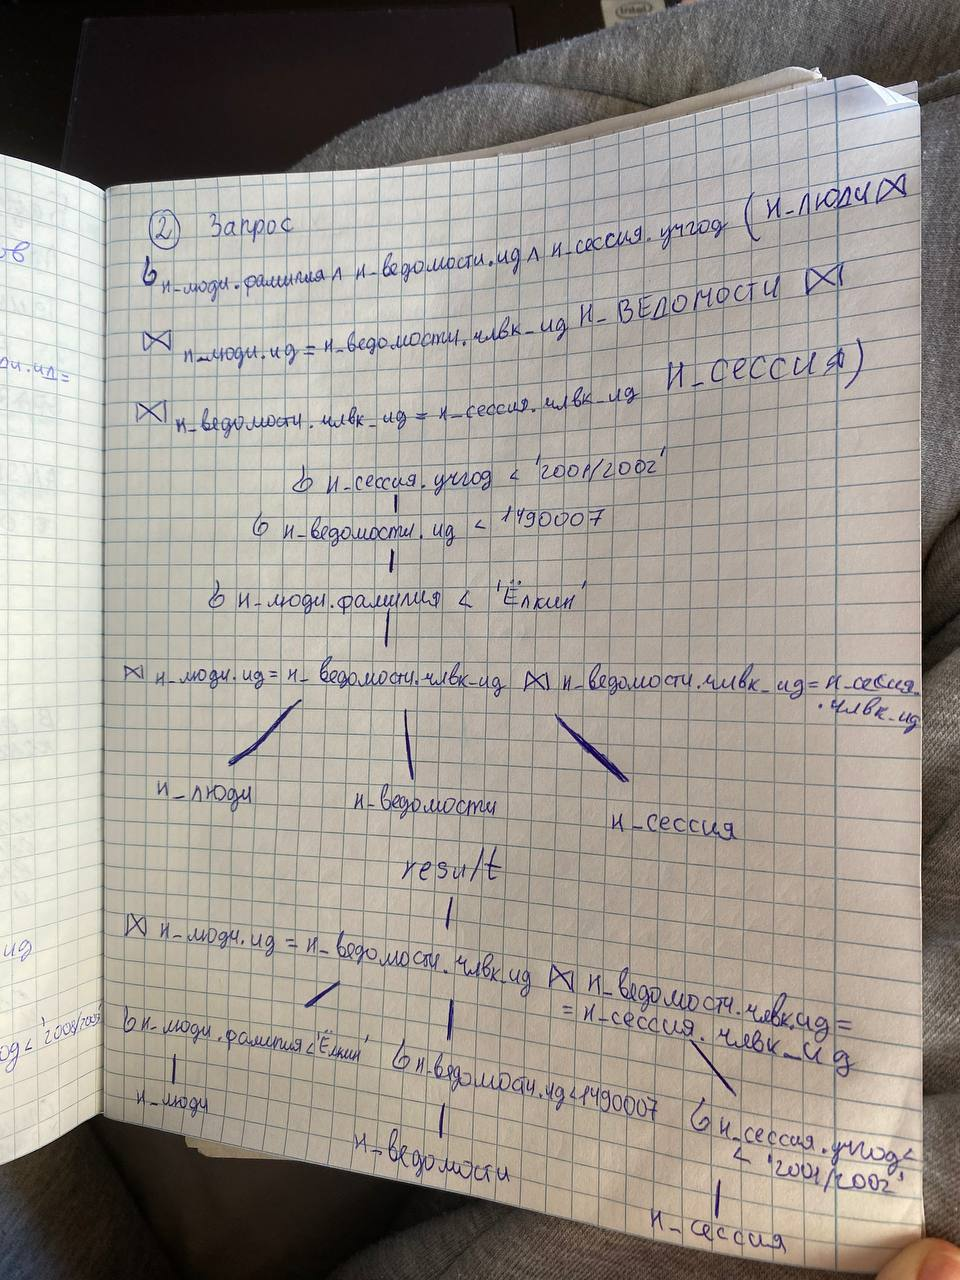 ② Запрос
σ н_люди.фамилия ∧ н_ведомости.ид ∧ н_сессия.учгод (н_люди ⋈
⋈ н_люди.ид = н_ведомости.члвк_ид Н_ВЕДОМОСТИ ⋈
⋈ н_ведомости.члвк_ид = н_сессия.члвк_ид Н_СЕССИЯ)
σ н_сессия.учгод < '2001/2002'
σ н_ведомости.ид < 1490007
σ н_люди.фамилия < 'Ёлкин'
⋈ н_люди.ид = н_ведомости.члвк_ид ⋈ н_ведомости.члвк_ид = н_сессия.
.члвк_ид
н_люди
н_ведомости
н_сессия
result
⋈ н_люди.ид = н_ведомости.члвк_ид ⋈ н_ведомости.члвк_ид =
= н_сессия.члвк_ид
σ н_люди.фамилия < 'Ёлкин'
σ н_ведомости.ид < 1490007
σ н_сессия.учгод <
< '2001/2002'
н_люди
н_ведомости
н_сессия
ов
ди.ид =
ид
од < '2008/2009'